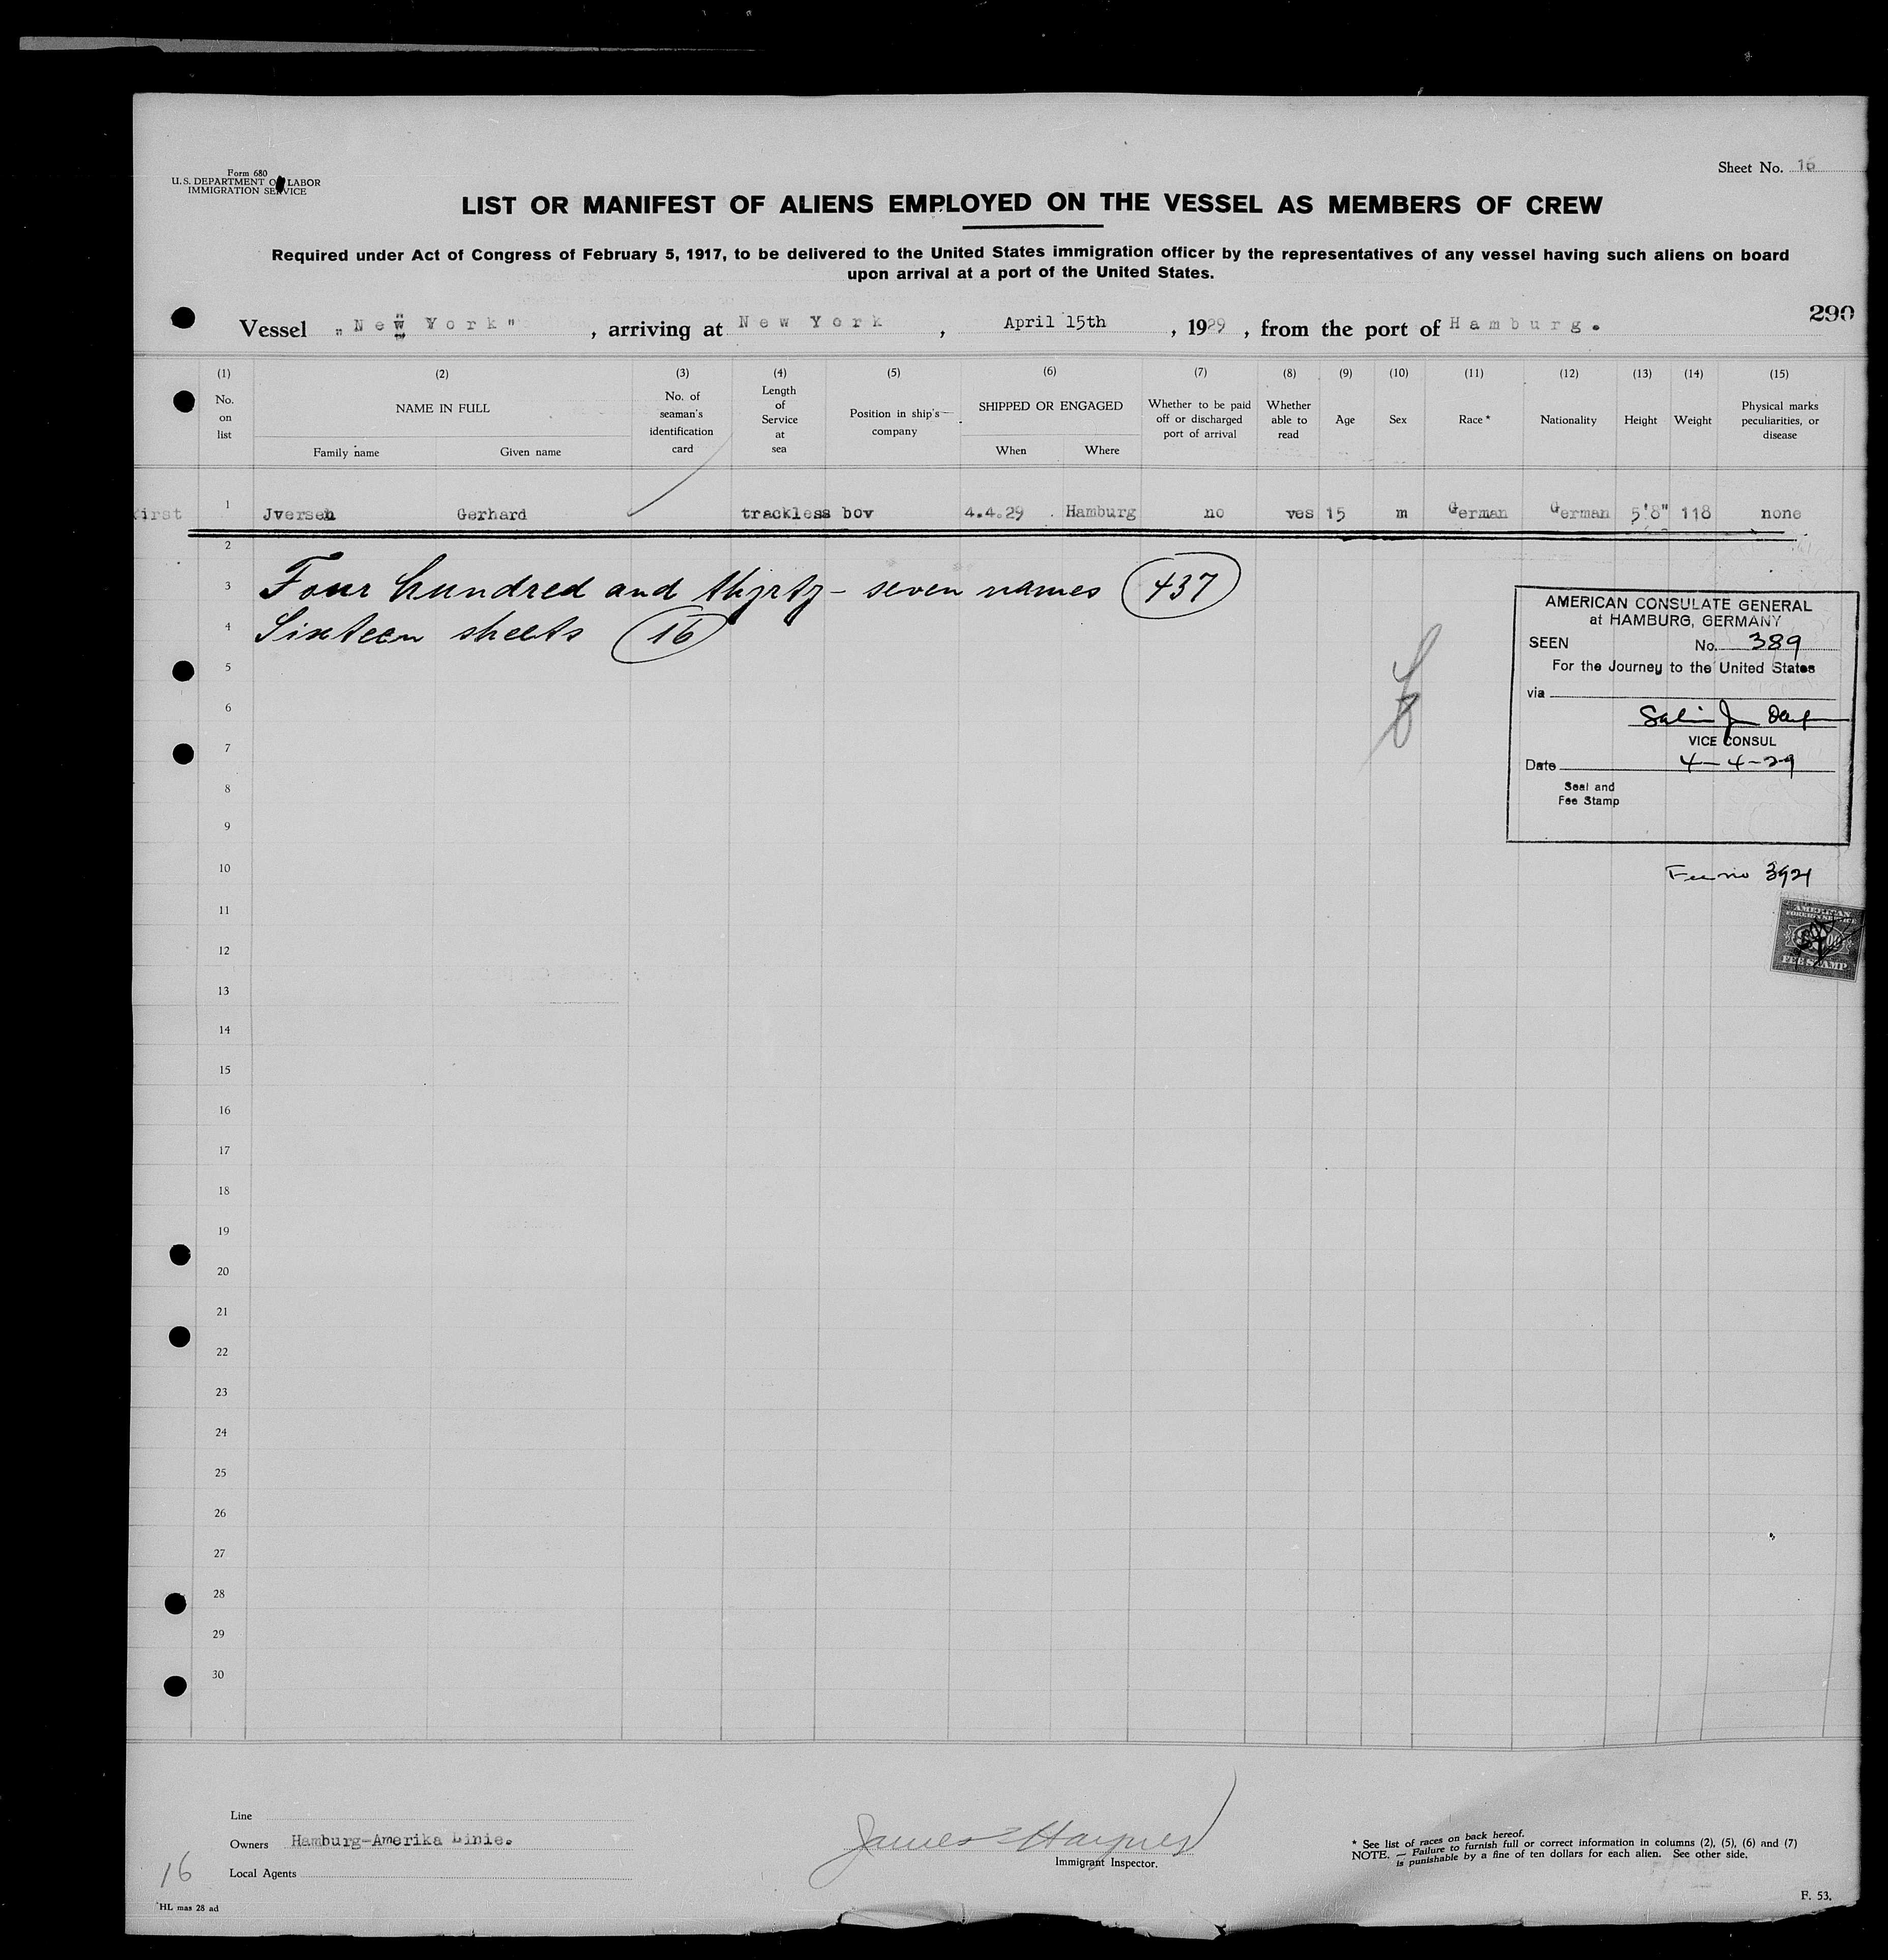 Form 680
U.S. DEPARTMENT OF LABOR
IMMIGRATION SERVICE
Sheet No. 16
LIST OR MANIFEST OF ALIENS EMPLOYED ON THE VESSEL AS MEMBERS OF CREW
Required under Act of Congress of February 5, 1917, to be delivered to the United States immigration officer by the representatives of any vessel having such aliens on board
upon arrival at a port of the United States.
290
Vessel "New York", arriving at New York, April 15th, 1929, from the port of Hamburg.
(1) (2) (3) (4) (5) (6) (7) (8) (9) (10) (11) (12) (13) (14) (15)
No. on list
NAME IN FULL
Family name Given name
No. of seaman's identification card
Length of Service at sea
Position in ship's company
SHIPPED OR ENGAGED
When Where
Whether to be paid off or discharged port of arrival
Whether able to read
Age
Sex
Race *
Nationality
Height
Weight
Physical marks peculiarities, or disease
first 1 Jversen Gerhard trackless boy 4.4.29 Hamburg no yes 15 m German German 5'8" 118 none
2
3 Four hundred and thyrty-seven names 437
4 Sixteen sheets 16
5
6
7
8
9
10
11
12
13
14
15
16
17
18
19
20
21
22
23
24
25
26
27
28
29
30
AMERICAN CONSULATE GENERAL
at HAMBURG, GERMANY
SEEN No. 389
For the Journey to the United States
via
VICE CONSUL
Date 4-4-29
Seal and
Fee Stamp
Fee no 3921
AMERICAN
FOREIGN SERVICE
FEE STAMP
Line
Owners Hamburg-Amerika Linie.
Local Agents
16
HL mas 28 ad
James Haynes
Immigrant Inspector.
* See list of races on back hereof.
NOTE. — Failure to furnish full or correct information in columns (2), (5), (6) and (7)
is punishable by a fine of ten dollars for each alien. See other side.
F. 53.